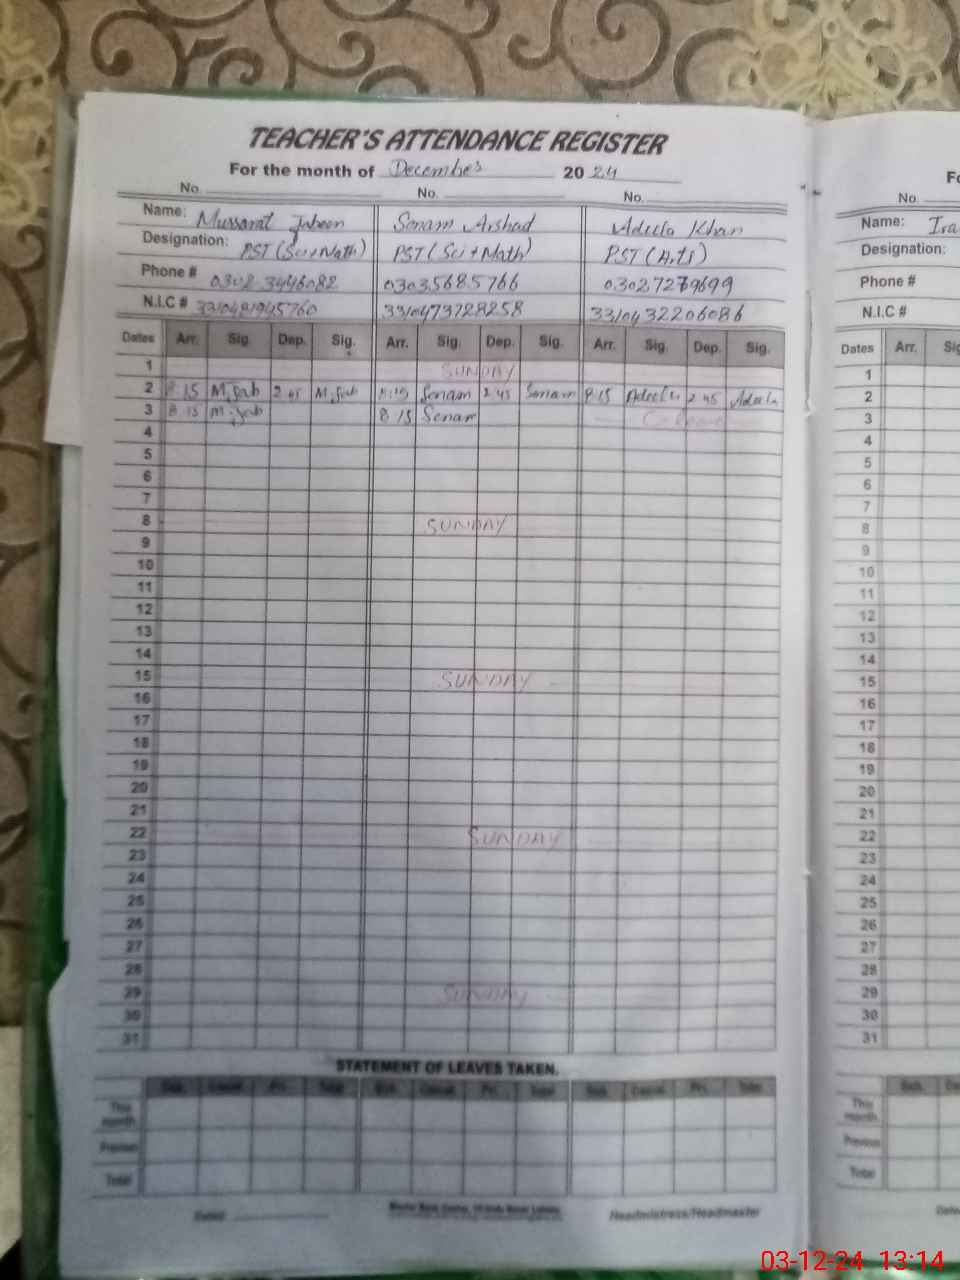 TEACHER'S ATTENDANCE REGISTER
For the month of December 2024
No. No. No.
Name: Mussarat Jabeen Sonam Arshad Adeela Khan
Designation: PST (Sci+Math) PST (Sci+Math) PST (Arts)
Phone # 0302 3446082 03035685766 03027279699
N.I.C # 3310481945760 3310473728258 3310432206086
Dates Arr. Sig. Dep. Sig. Arr. Sig. Dep. Sig. Arr. Sig. Dep. Sig.
1 SUNDAY
2 8:15 M.Jab 2:45 M.Jab 8:15 Sonam 2:45 Sonam 8:15 Adeela 2:45 Adeela
3 8:15 M.Jab 8:15 Sonam
4
5
6
7
8 SUNDAY
9
10
11
12
13
14
15 SUNDAY
16
17
18
19
20
21
22 SUNDAY
23
24
25
26
27
28
29 SUNDAY
30
31
STATEMENT OF LEAVES TAKEN.
This month.
Previous
Total
Dated
Headmistress/Headmaster
No.
Name: Ira
Designation:
Phone #
N.I.C #
Dates Arr.
1
2
3
4
5
6
7
8
9
10
11
12
13
14
15
16
17
18
19
20
21
22
23
24
25
26
27
28
29
30
31
This month.
Previous
Total
03-12-24 13:14